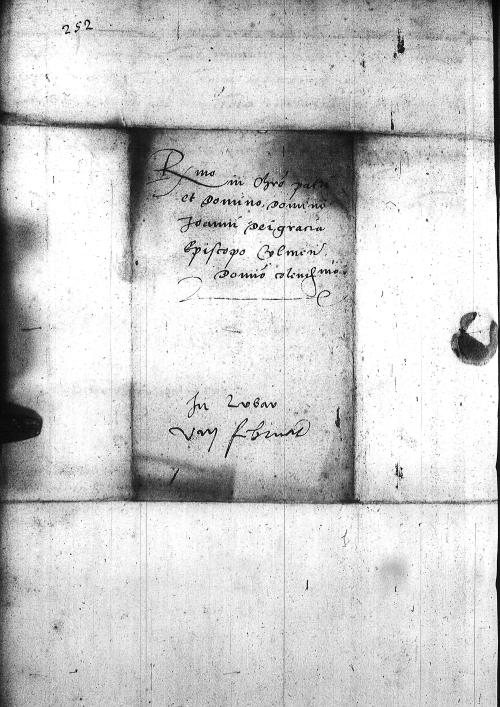 252
Rmo in Chro patri
et Domino, Domino
Joanni Dei gracia
Episcopo Culmen
Domino colendmo
In Lubav
Februar